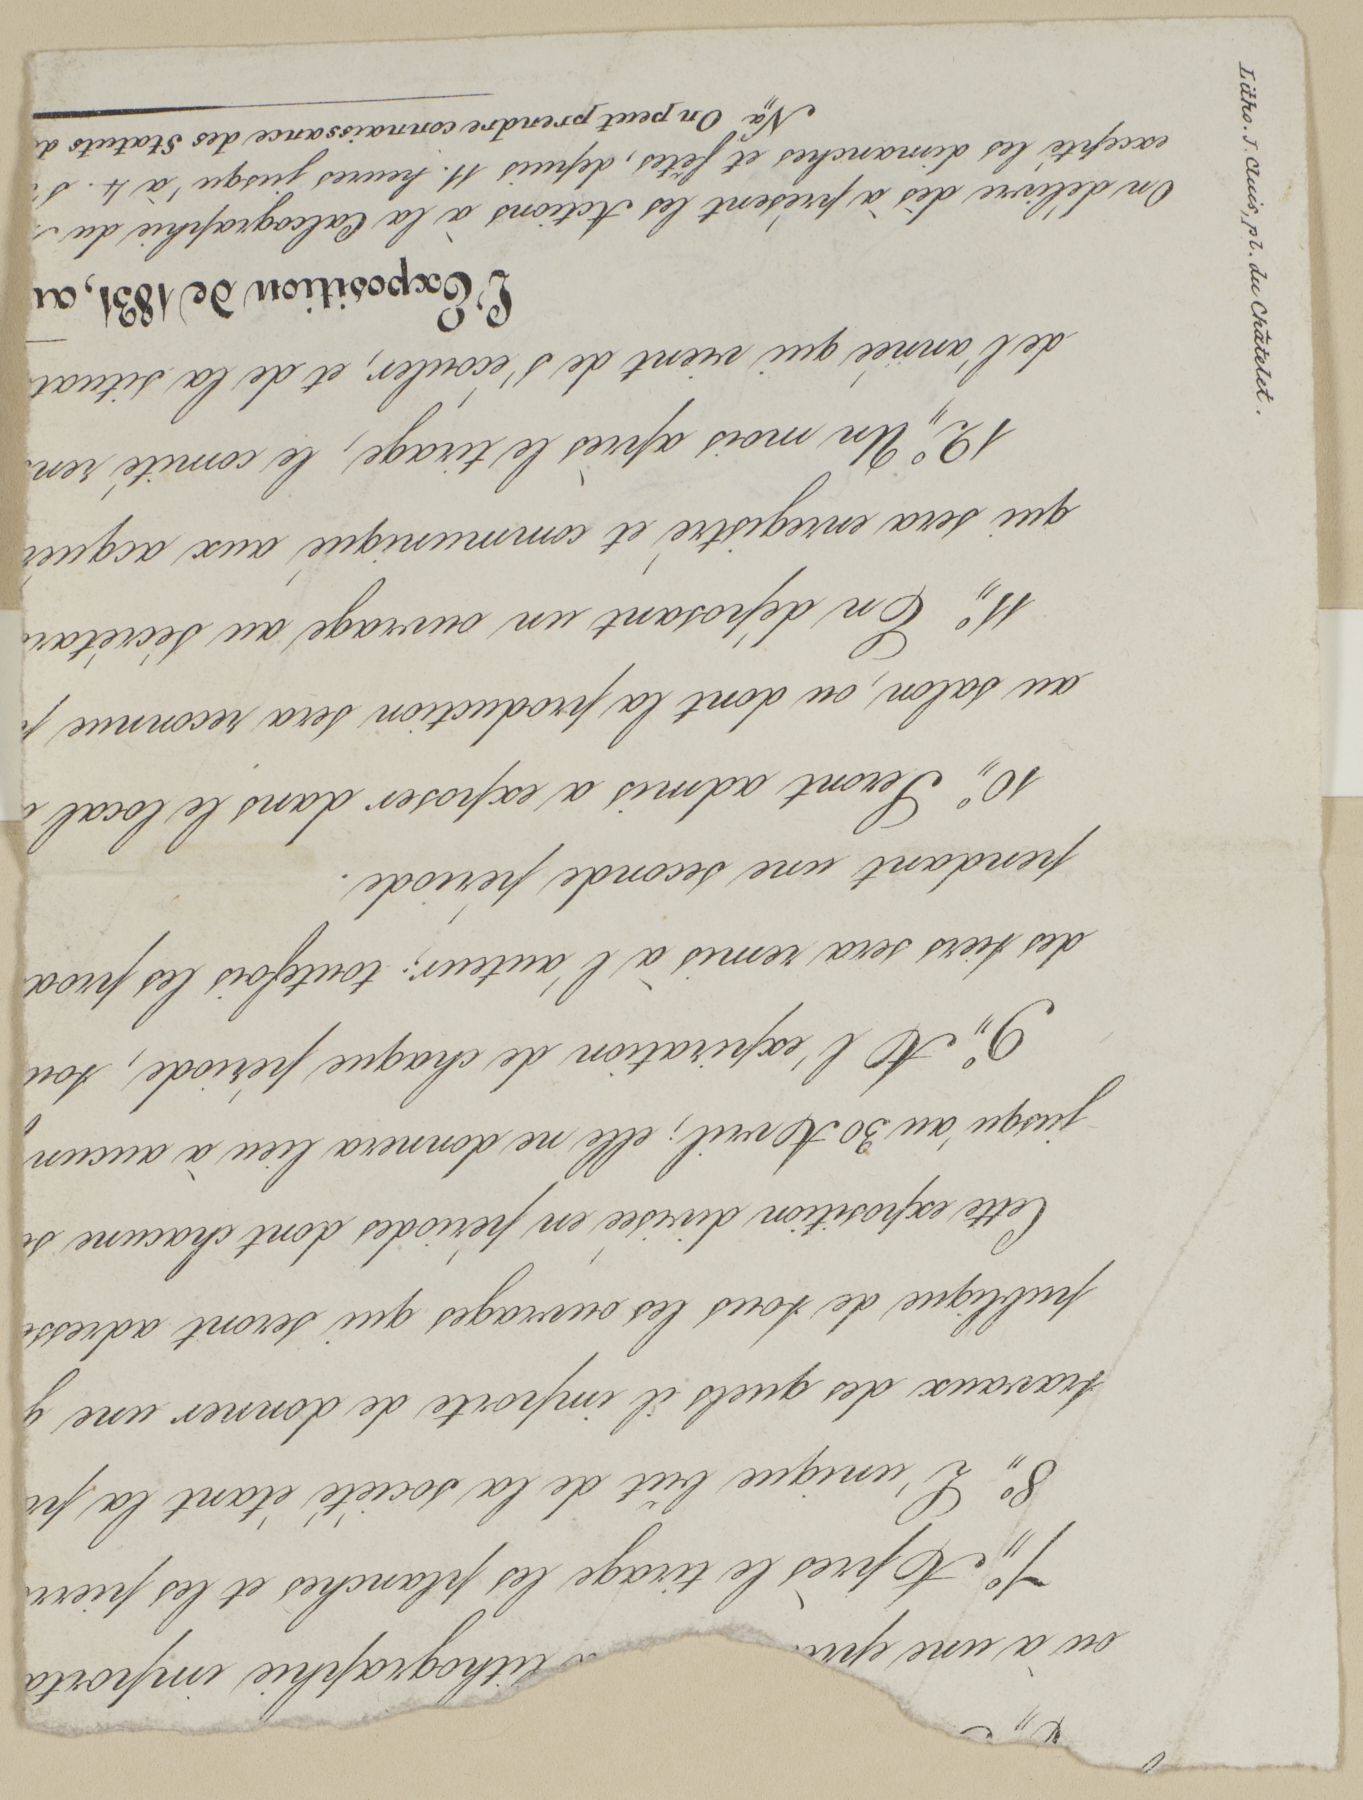 ou à une lithographie importa
7°„ Après le tirage les planches et les pierr
8°„ L'unique but de la société étant la pr
travaux des quels il importe de donner une g
publique de tous les ouvrages qui seront adressé
Cette exposition divisée en périodes dont chacune se
jusqu'au 30 Avril; elle ne donnera lieu à aucun
9°„ A l'expiration de chaque période, tou
des tiers sera remis à l'auteur; toutefois les prod
pendant une seconde période.
10°„ Seront admis a exposer dans le local
au salon, ou dont la production sera reconnue p
11°„ En déposant un ouvrage au secrétari
qui sera enregistré et communiqué aux acquér
12°„ Un mois après le tirage, le comité ren
de l'année qui vient de s'écouler, et de la situat
L'Exposition de 1831, au
On délivre dès à présent les Actions à la Calcographie du
excepté les dimanches et fêtes, depuis 11. heures jusqu'à 4.
Na„ On peut prendre connaissance des Statuts de
Litho. J. Cluis, pl. du Châtelet.